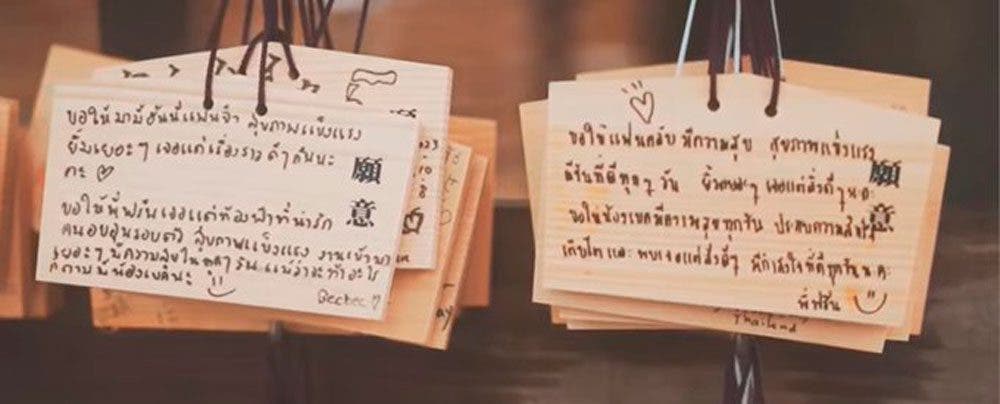 ขอให้มามี้ฮันนี่แฟนจ๋า สุขภาพแข็งแรง
ยิ้มเยอะๆ เจอแต่เรื่องราวดีๆกันนะ
คะ ♡
ขอให้พี่ฟรีนเจอแต่ท้องฟ้าที่น่ารัก
คนอบอุ่นรอบตัว สุขภาพแข็งแรง งานเข้ามา
เยอะๆ มีความสุขในทุกๆวัน แม้ว่าจะทำอะไร
ก็ตามพี่มีน้องเบคนะ
Becbec ♡
願
意
023
ขอให้แฟนคลับ มีความสุข สุขภาพแข็งแรง
มีวันที่ดีทุกๆวัน ยิ้มเยอะๆ เจอแต่สิ่งดีๆนะคะ
ขอให้น้องเบคมีความสุขทุกวัน ประสบความสำเร็จ
เติบโตและพบเจอแต่สิ่งดีๆ มีกำลังใจที่ดีทุกวันนะคะ
พี่ฟรีน
願
意
Thailand